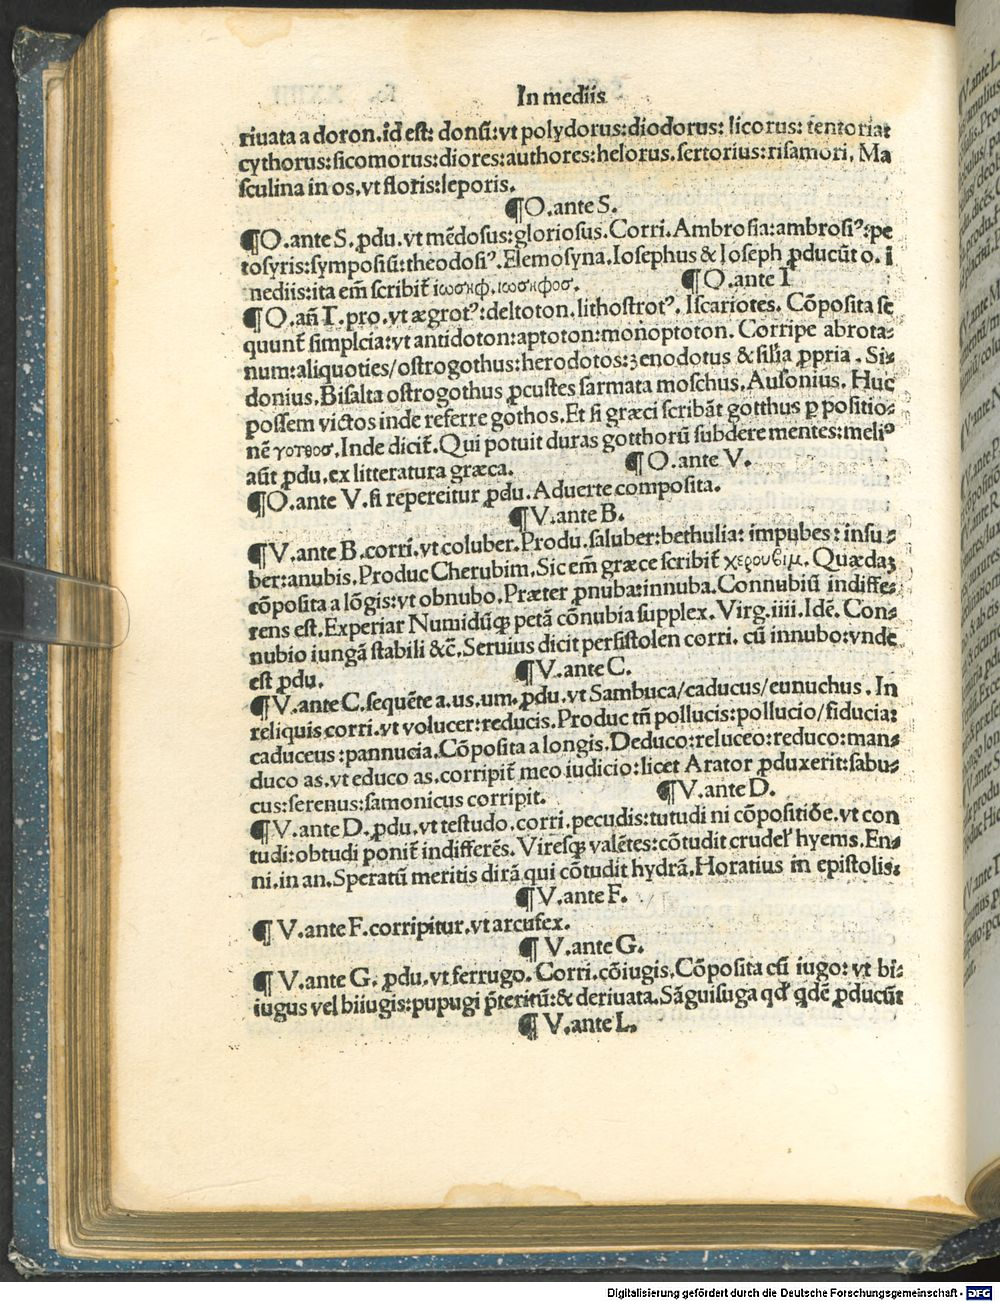 In mediis
riuata a doron.id est: donū:vt polydorus:diodorus: licorus: tentoria:
cythorus:sicomorus:diores:authores:helorus.sertorius:risamori. Ma
sculina in os.vt floris:leporis.
¶O.ante S.
¶O.ante S.ꝓdu.vt mēdosus:gloriosus.Corri.Ambrosia:ambrosiꝰ:pe
tosyris:symposiū:theodosiꝰ.Elemosyna.Iosephus & Ioseph ꝓducūt o. i
nediis:ita em̄ scribit̄ ιωσηφ.ιωσηφοσ.
¶O.ante T
¶O.an̄ T.pro.vt ægrotꝰ:deltoton.lithostrotꝰ.Iscariotes. Cōposita se
quunt̄ simplcia:vt antidoton:aptoton:monoptoton. Corripe abrota-
num:aliquoties/ostrogothus:herodotos:zenodotus & silia ꝓpria . Si-
donius.Bisalta ostrogothus ꝓcustes sarmata moschus.Ausonius. Huc
possem victos inde referre gothos.Et si græci scribāt gotthus ꝑ positio-
nē γοτθοσ.Inde dicit̄.Qui potuit duras gotthorū subdere mentes:meliꝰ
aūt ꝓdu.ex litteratura græca.
¶O.ante V.
¶O.ante V.si repereitur ꝓdu.Aduerte composita.
¶V.ante B.
¶V.ante B.corri.vt coluber.Produ.saluber:bethulia: impubes: insu-
ber:anubis.Produc Cherubim.Sic em̄ græce scribit̄ χερουβιμ. Quædaꝫ
cōposita a lōgis:vt obnubo.Præter ꝓnuba:innuba.Connubiū indiffe-
rens est.Experiar Numidūqꝫ petā cōnubia supplex. Virg.iiii. Idē. Con-
nubio iungā stabili &c̄.Seruius dicit persistolen corri. cū innubo:vnde
est ꝓdu.
¶V.ante C.
¶V.ante C.sequēte a.us.um.ꝓdu.vt Sambuca/caducus/eunuchus. In
reliquis corri.vt volucer:reducis.Produc tn̄ pollucis:pollucio/fiducia:
caduceus:pannucia.Cōposita a longis.Deduco:reluceo:reduco:man-
duco as.vt educo as.corripit̄ meo iudicio:licet Arator ꝓduxerit:sabu-
cus:serenus:samonicus corripit.
¶V.ante D.
¶V.ante D.ꝓdu.vt testudo.corri.pecudis:tutudi ni cōpositiōe.vt con
tudi:obtudi ponit̄ indifferēs. Viresqꝫ valētes:cōtudit crudel' hyems.En-
ni.in an.Speratū meritis dirā qui cōtudit hydrā.Horatius in epistolis.
¶V.ante F.
¶ V.ante F.corripitur.vt arcufex.
¶ V.ante G.
¶ V.ante G. ꝓdu.vt ferrugo. Corri.cōiugis.Cōposita cū iugo: vt bi-
iugus vel biiugis:pupugi p̄teritū:& deriuata.Sāguisuga qd' qdē ꝓducūt
¶ V.ante L.
Digitalisierung gefördert durch die Deutsche Forschungsgemeinschaft - DFG